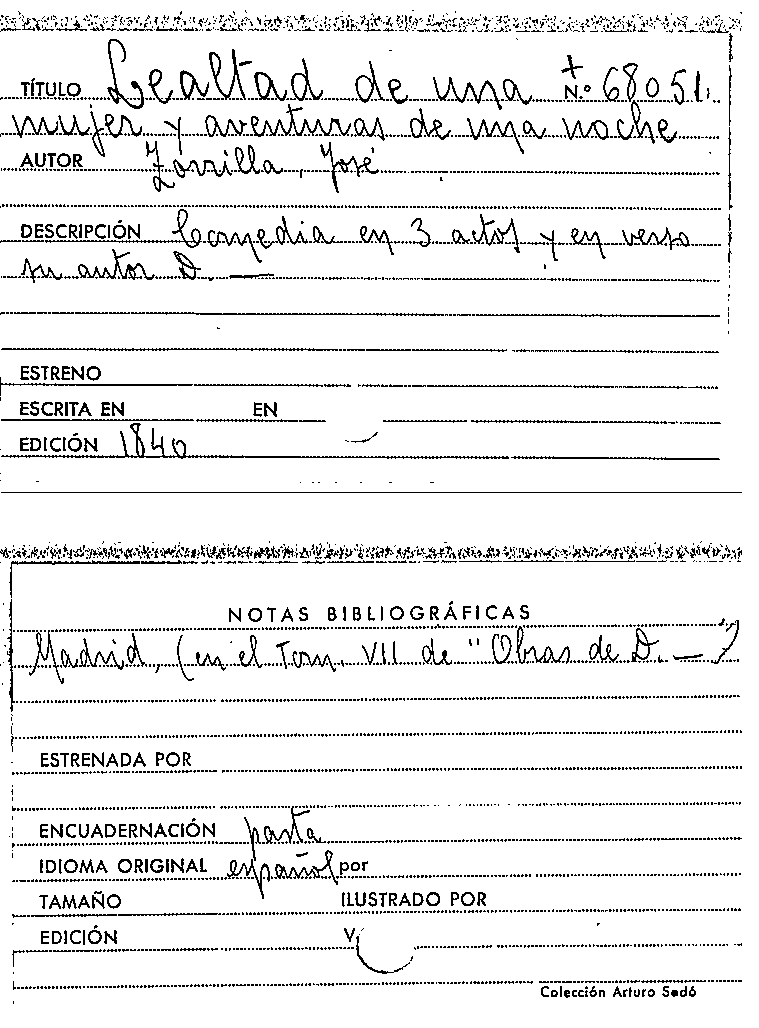 TÍTULO Lealtad de una + N.º 68051.
mujer y aventuras de una noche
AUTOR Zorrilla, José
DESCRIPCIÓN Comedia en 3 actos y en verso
su autor D. —
ESTRENO
ESCRITA EN EN
EDICIÓN 1840
NOTAS BIBLIOGRÁFICAS
Madrid, (en el Tom. VII de "Obras de D. —")
ESTRENADA POR
ENCUADERNACIÓN pasta
IDIOMA ORIGINAL español por
TAMAÑO ILUSTRADO POR
EDICIÓN V.
Colección Arturo Sedó